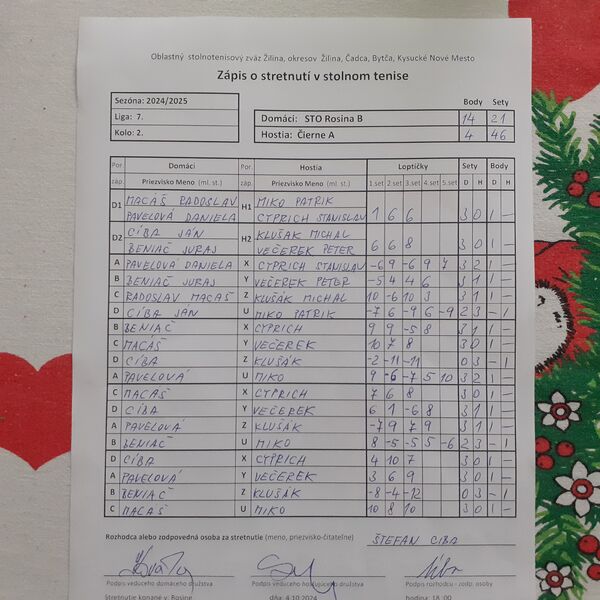 Oblastný stolnotenisový zväz Žilina, okresov Žilina, Čadca, Bytča, Kysucké Nové Mesto
Zápis o stretnutí v stolnom tenise
Sezóna: 2024/2025 Body Sety
Liga: 7. Domáci: STO Rosina B 14 21
Kolo: 2. Hostia: Čierne A 4 46
Por. Domáci Por. Hostia Loptičky Sety Body
záp. Priezvisko Meno (ml. st.) záp. Priezvisko Meno (ml. st.) 1.set 2.set 3.set 4.set 5.set D H D H
D1 MACÁŠ RADOSLAV H1 MIKO PATRIK
PAVELOVÁ DANIELA CYPRICH STANISLAV 1 6 6 3 0 1 –
D2 CIBA JÁN H2 KLUŠAK MICHAL
BENIAČ JURAJ VEČEREK PETER 6 6 8 3 0 1 –
A PAVELOVÁ DANIELA X CYPRICH STANISLAV -6 9 -6 9 7 3 2 1 –
B BENIAČ JURAJ Y VEČEREK PETER -5 4 4 6 3 1 1 –
C RADOSLAV MACAŠ Z KLUŠÁK MICHAL 10 -6 10 3 3 1 1 –
D CIBA JÁN U MIKO PATRIK -7 6 -9 6 -9 2 3 – 1
B BENIAČ X CYPRICH 9 9 -5 8 3 1 1 –
C MACAŠ Y VEČEREK 10 7 8 3 0 1 –
D CIBA Z KLUŠÁK -2 -11 -11 0 3 – 1
A PAVELOVÁ U MIKO 9 -6 -7 5 10 3 2 1 –
C MACAŠ X CYPRICH 7 6 8 3 0 1 –
D CIBA Y VEČEREK 6 1 -6 8 3 1 1 –
A PAVELOVÁ Z KLUŠÁK -7 9 7 9 3 1 1 –
B BENIAČ U MIKO 8 -5 -5 5 -6 2 3 – 1
D CIBA X CYPRICH 4 10 7 3 0 1 –
A PAVELOVÁ Y VEČEREK 3 6 9 3 0 1 –
B BENIAČ Z KLUŠÁK -8 -4 -12 0 3 – 1
C MACAŠ U MIKO 10 8 10 3 0 1 –
Rozhodca alebo zodpovedná osoba za stretnutie (meno, priezvisko-čitateľne) ŠTEFAN CIBA
Podpis vedúceho domáceho družstva Podpis vedúceho hosťujúceho družstva Podpis rozhodcu - zodp. osoby
Stretnutie konané v: Rosine dňa: 4.10.2024 hodina: 18:00